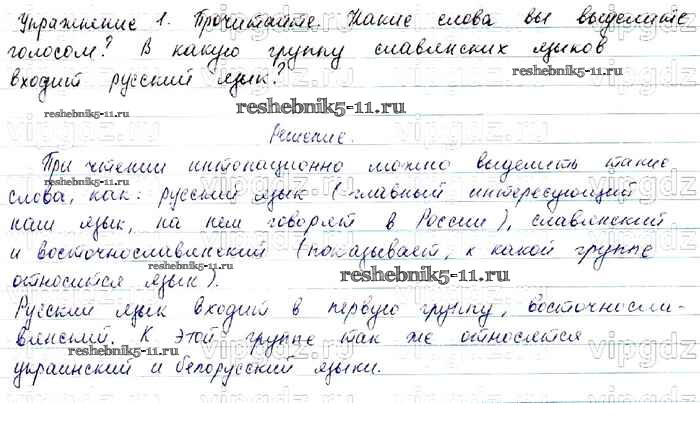 Упражнение 1. Прочитайте. Какие слова вы выделите
голосом? В какую группу славянских языков
входит русский язык?
reshebnik5-11.ru
reshebnik5-11.ru
Решение.
При чтении интонационно можно выделить такие
reshebnik5-11.ru
слова, как: русский язык (главный интересующий
наш язык, на нем говорят в России), славянский
и восточнославянский (показывает, к какой группе
относится язык).
reshebnik5-11.ru
Русский язык входит в первую группу, восточносла-
вянский. К этой группе так же относятся
reshebnik5-11.ru
украинский и белорусский языки.
vipgdz
vipgdz
vipgdz
vipgdz